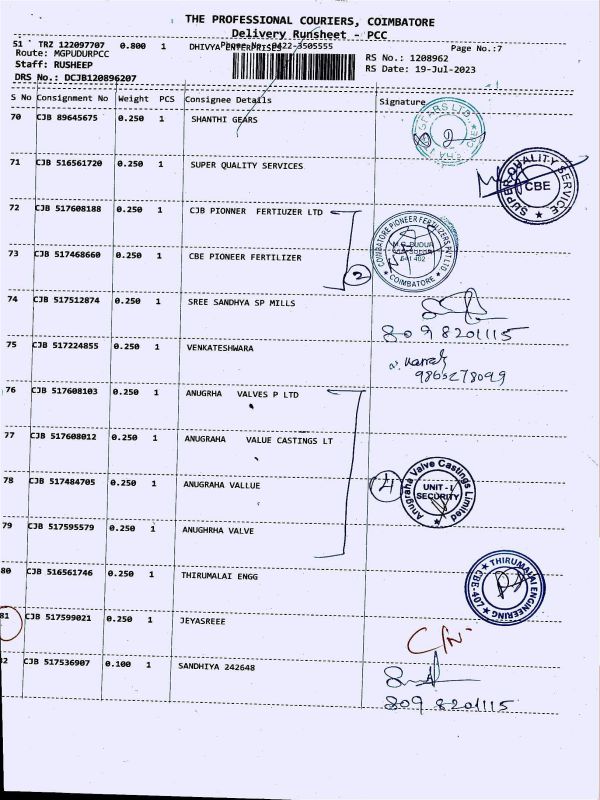 THE PROFESSIONAL COURIERS, COIMBATORE
Delivery Runsheet - PCC
51 TRZ 122097707 0.800 1 DHIVYA ENTERPRISES Phone No.:0422-3505555 Page No.:7
Route: MGPUDURPCC RS No.: 1208962
Staff: RUSHEEP RS Date: 19-Jul-2023
DRS No.: DCJB120896207
S No Consignment No Weight PCS Consignee Details Signature
70 CJB 89645675 0.250 1 SHANTHI GEARS
GEARS LTD.
71 CJB 516561720 0.250 1 SUPER QUALITY SERVICES
SUPER QUALITY SERVICE
CBE
72 CJB 517608188 0.250 1 CJB PIONNER FERTIUZER LTD
COIMBATORE PIONEER FERTILIZERS PVT LTD
COIMBATORE
2
73 CJB 517468660 0.250 1 CBE PIONEER FERTILIZER
74 CJB 517512874 0.250 1 SREE SANDHYA SP MILLS
8098201115
75 CJB 517224855 0.250 1 VENKATESHWARA
9865278099
76 CJB 517608103 0.250 1 ANUGRHA VALVES P LTD
77 CJB 517608012 0.250 1 ANUGRAHA VALUE CASTINGS LT
78 CJB 517484705 0.250 1 ANUGRAHA VALLUE
4
Anugraha Valve Castings Limited
UNIT - I
SECURITY
79 CJB 517595579 0.250 1 ANUGHRHA VALVE
80 CJB 516561746 0.250 1 THIRUMALAI ENGG
THIRUMALAI ENGINEERING
CBE-407
81 CJB 517599021 0.250 1 JEYASREEE
C/N
32 CJB 517536907 0.100 1 SANDHIYA 242648
8098201115